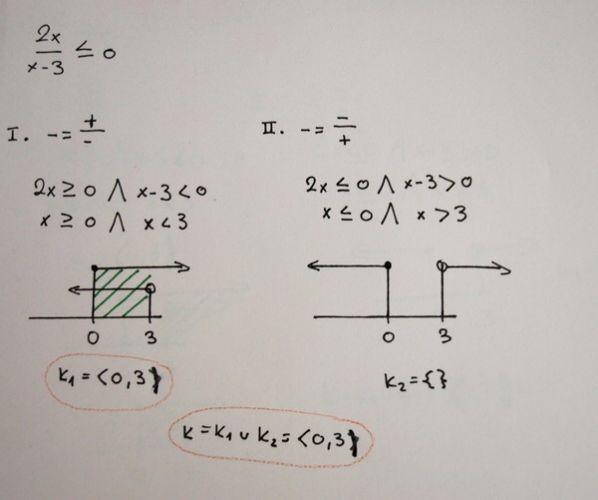 2x/(x-3) ≤ 0
I. - = +/-
2x ≥ 0 ∧ x-3 < 0
x ≥ 0 ∧ x < 3
0 3
K₁ = <0,3)
II. - = -/+
2x ≤ 0 ∧ x-3 > 0
x ≤ 0 ∧ x > 3
0 3
K₂ = {}
K = K₁ ∪ K₂ = <0,3)